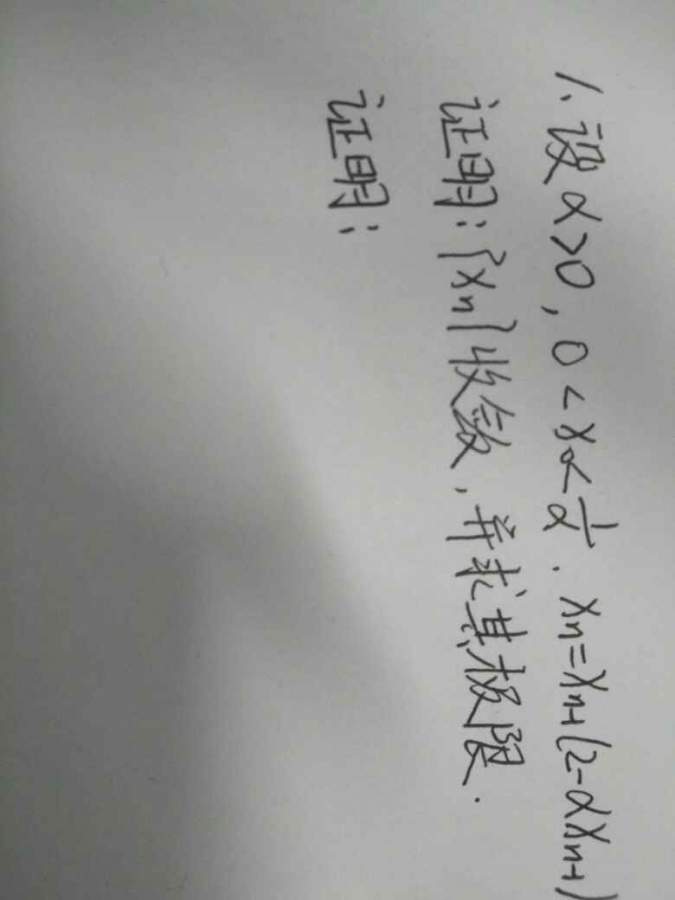 1. 设α>0, 0<x<1/α. xₙ=xₙ₋₁(2-αxₙ₋₁)
证明:{xₙ}收敛,并求其极限.
证明: